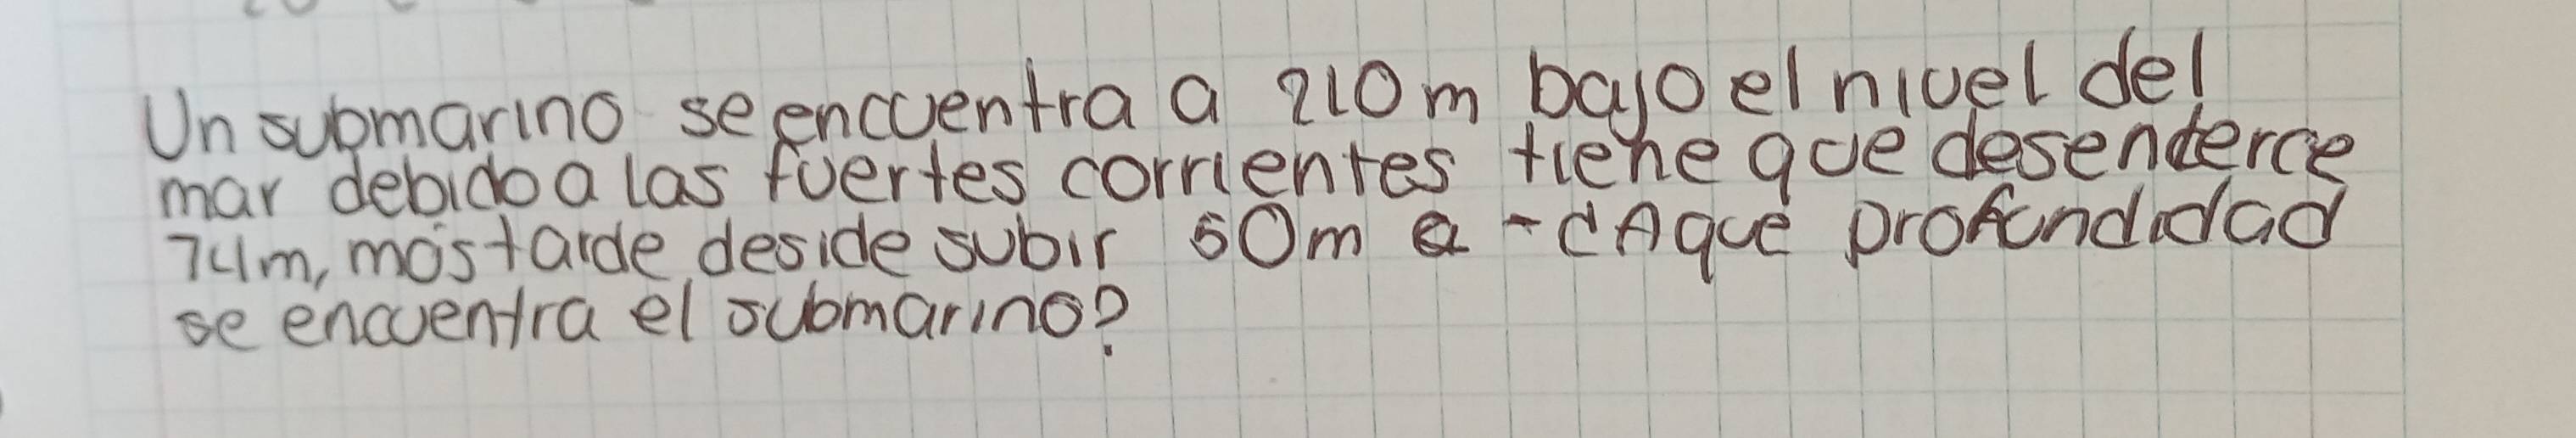 Un submarino se encuentra a 210m bajo el nivel del
mar debido a las fuertes corrientes tiene que desenderce
74m, mas tarde deside subir 50m a - ¿A que profundidad
se encuentra el submarino?